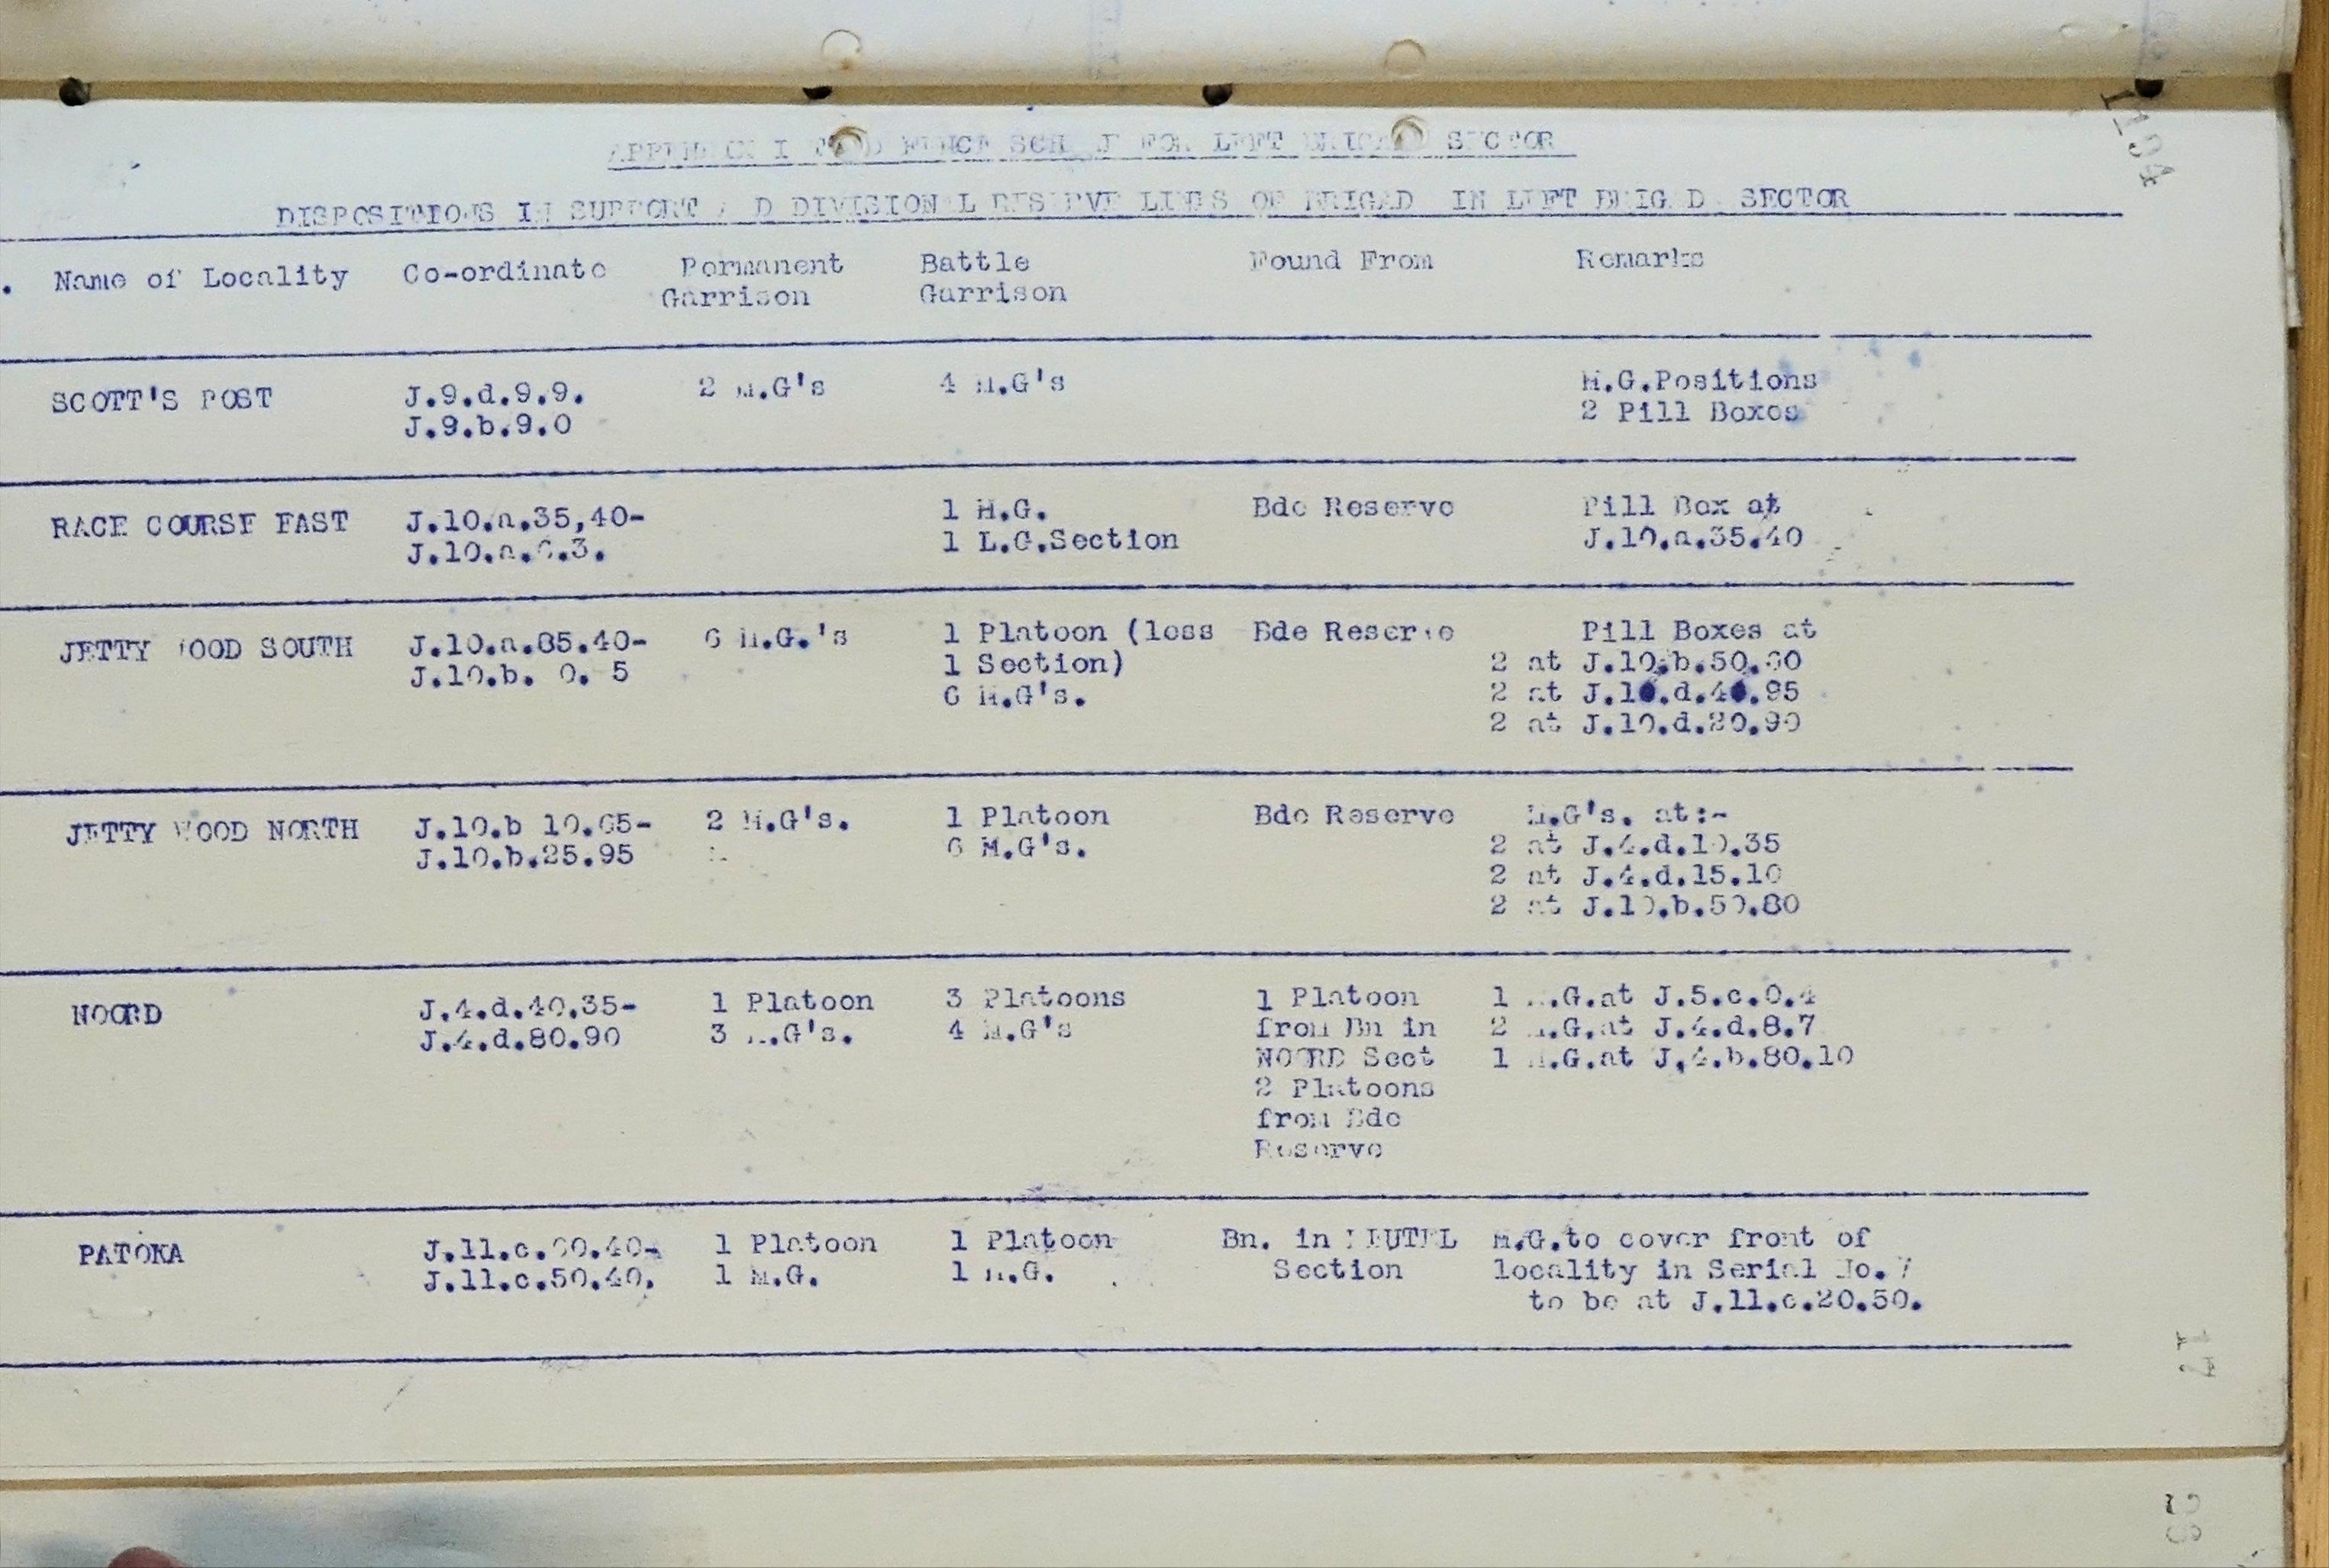 APPENDIX I TO DEFENCE SCHEME FOR LEFT BRIGADE SECTOR
DISPOSITIONS IN SUPPORT AND DIVISIONAL RESERVE LINES OF BRIGADE IN LEFT BRIGADE SECTOR
. Name of Locality Co-ordinate Permanent Garrison Battle Garrison Found From Remarks
SCOTT'S POST J.9.d.9.9. 2 M.G's 4 M.G's M.G.Positions
J.9.b.9.0 2 Pill Boxes
RACE COURSE EAST J.10.a.35,40- 1 M.G. Bde Reserve Pill Box at
J.10.a.6.3. 1 L.G.Section J.10.a.35.40
JETTY WOOD SOUTH J.10.a.85.40- 6 M.G.'s 1 Platoon (less Bde Reserve Pill Boxes at
J.10.b. 0. 5 1 Section) 2 at J.10.b.50.
6 M.G's. 2 at J.10.d.40.95
2 at J.10.d.20.90
JETTY WOOD NORTH J.10.b 10.65- 2 M.G's. 1 Platoon Bde Reserve M.G's. at:-
J.10.b.25.95 6 M.G's. 2 at J.4.d.10.35
2 at J.4.d.15.10
2 at J.10.b.50.80
NOORD J.4.d.40.35- 1 Platoon 3 Platoons 1 Platoon 1 M.G.at J.5.c.0.4
J.4.d.80.90 3 M.G's. 4 M.G's from Bn in 2 M.G.at J.4.d.8.7
NOORD Sect 1 M.G.at J.4.b.80.10
2 Platoons
from Bde
Reserve
PATOKA J.11.c. .40- 1 Platoon 1 Platoon Bn. in REUTEL M.G.to cover front of
J.11.c.50.40. 1 M.G. 1 M.G. Section locality in Serial No.7
to be at J.11.c.20.50.
1194
17
28